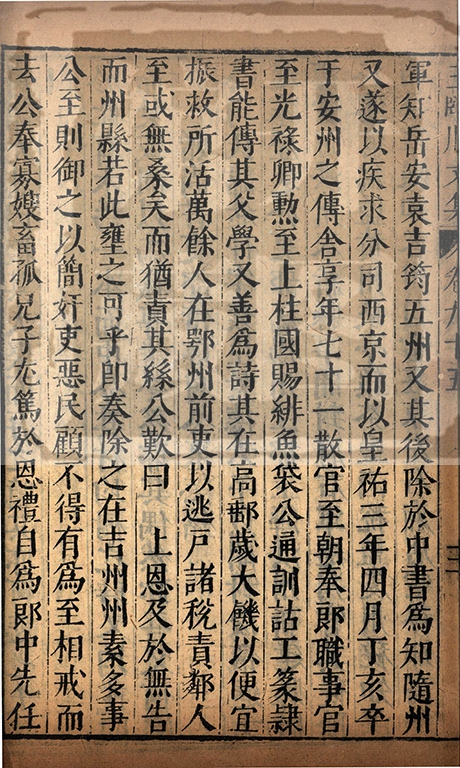 王臨川文集 卷九十五 三
軍知岳安袁吉筠五州又其後除於中書爲知隨州
又遂以疾求分司西京而以皇祐三年四月丁亥卒
于安州之傳舎享年七十一散官至朝奉郞職事官
至光祿卿勲至上柱國賜緋魚袋公通訓詁工篆隷
書能傳其父學又善爲詩其在高郵歲大饑以便宜
振救所活萬餘人在鄂州前吏以逃戸諸稅責鄰人
至或無桑矣而猶責其絲公歎曰 上恩及於無告
而州縣若此壅之可乎卽奏除之在吉州州素多事
公至則御之以簡奸吏惡民顧不得有爲至相戒而
去公奉寡嫂畜孤兄子尤篤於恩禮自爲郞中先任